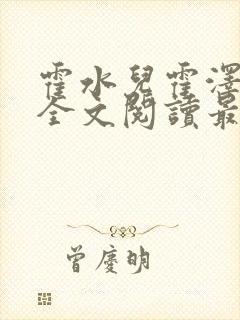 霍水兒霍澤
全文閱讀最
曾慶明